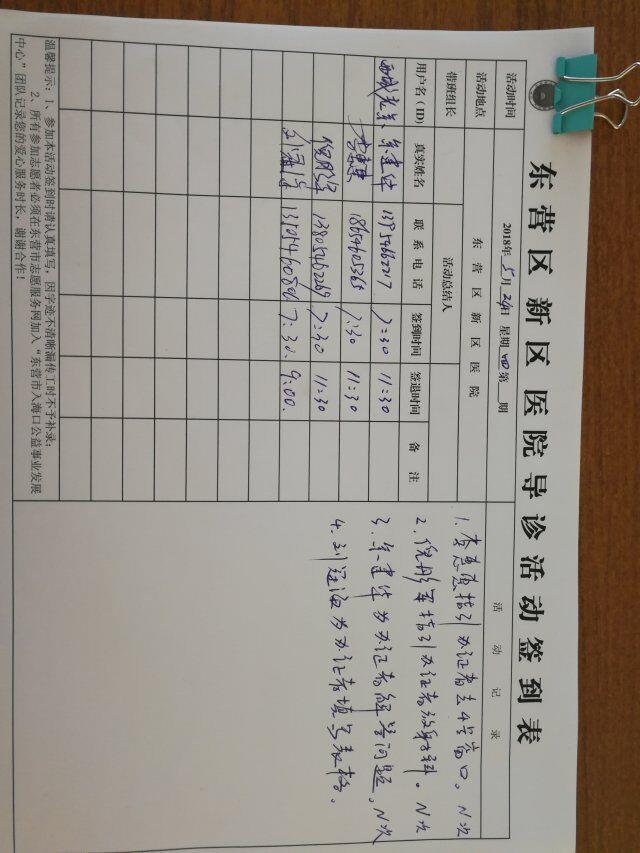 东营区新区医院导诊活动签到表
活动时间 2018年5月24日 星期四 第 期 活动记录
活动地点 东营区新区医院
带班组长 活动总结人
用户名(ID) 真实姓名 联系电话 签到时间 签退时间 备注
7:30 11:30
李惠惠 18654605365 7:30 11:30
倪彤军 7:30 11:30
刘冠海 7:30 9:00
1. 李惠惠指引办证者去4号窗口。N次
2. 倪彤军指引办证者 材料。N次
3. 为办证者解答问题。N次
4. 刘冠海为办证者填写表格。
温馨提示:1、参加本活动签到时请认真填写,因字迹不清晰漏传工时不予补录;
2、所有参加志愿者必须在东营市志愿服务网加入“东营市入海口公益事业发展
中心”团队记录您的爱心服务时长,谢谢合作!